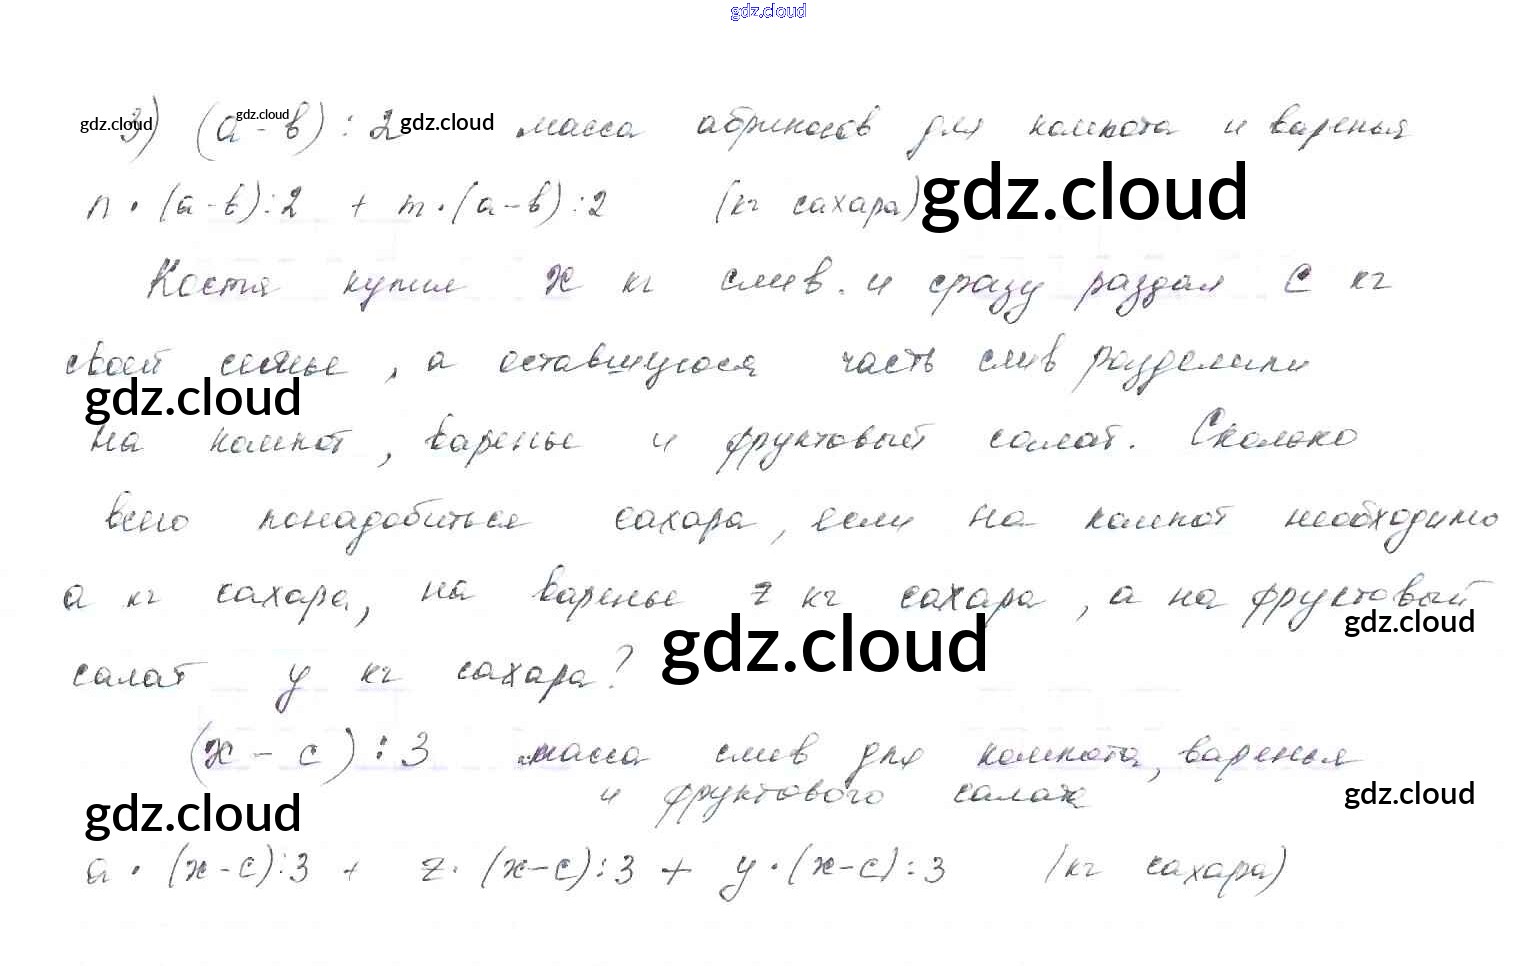 gdz.cloud
3) (a-b):2 масса абрикосов для компота и варенья
gdz.cloud gdz.cloud gdz.cloud
n·(a-b):2 + m·(a-b):2 (кг сахара)
gdz.cloud
Костя купил x кг слив. и сразу раздал c кг
своей семье, а оставшуюся часть слив разделили
gdz.cloud
на компот, варенье и фруктовый салат. Сколько
всего понадобиться сахара, если на компот необходимо
a кг сахара, на варенье z кг сахара, а на фруктовый
gdz.cloud gdz.cloud
салат y кг сахара?
(x-c):3 масса слив для компота, варенья
и фруктового салата
gdz.cloud gdz.cloud
a·(x-c):3 + z·(x-c):3 + y·(x-c):3 (кг сахара)